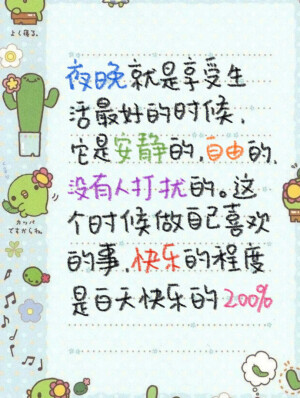 よく寝る。
夜晚就是享受生
活最好的时候，
它是安静的，自由的，
没有人打扰的。这
个时候做自己喜欢
的事，快乐的程度
是白天快乐的200%
カッパ
ですからね。